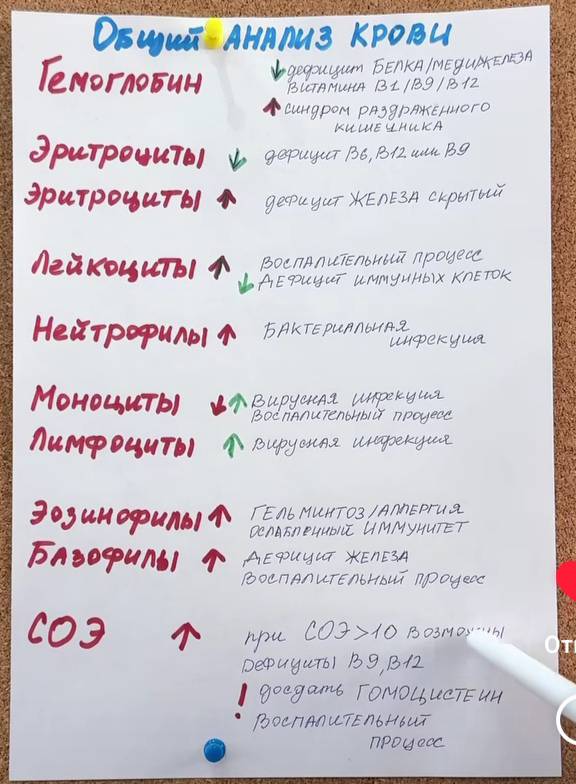 Общий АНАЛИЗ КРОВИ
Гемоглобин ↓ дефицит БЕЛКА/МЕДИ/ЖЕЛЕЗА
ВИТАМИНА В1/В9/В12
↑ СИНДРОМ РАЗДРАЖЕННОГО
КИШЕЧНИКА
Эритроциты ↓ дефицит В6, В12 или В9
Эритроциты ↑ дефицит ЖЕЛЕЗА скрытый
Лейкоциты ↑ ВОСПАЛИТЕЛЬНЫЙ ПРОЦЕСС
↓ ДЕФИЦИТ ИММУННЫХ КЛЕТОК
Нейтрофилы ↑ БАКТЕРИАЛЬНАЯ
инфекция
Моноциты ↓↑ Вирусная инфекция
ВОСПАЛИТЕЛЬНЫЙ процесс
Лимфоциты ↑ Вирусная инфекция
Эозинофилы ↑ ГЕЛЬМИНТОЗ/АЛЛЕРГИЯ
ОСЛАБЛЕННЫЙ ИММУНИТЕТ
Базофилы ↑ ДЕФИЦИТ ЖЕЛЕЗА
ВОСПАЛИТЕЛЬНЫЙ процесс
СОЭ ↑ при СОЭ>10 ВОЗМОЖНЫ
Дефициты В9, В12
! досдать ГОМОЦИСТЕИН
ВОСПАЛИТЕЛЬНЫЙ
ПРОЦЕСС